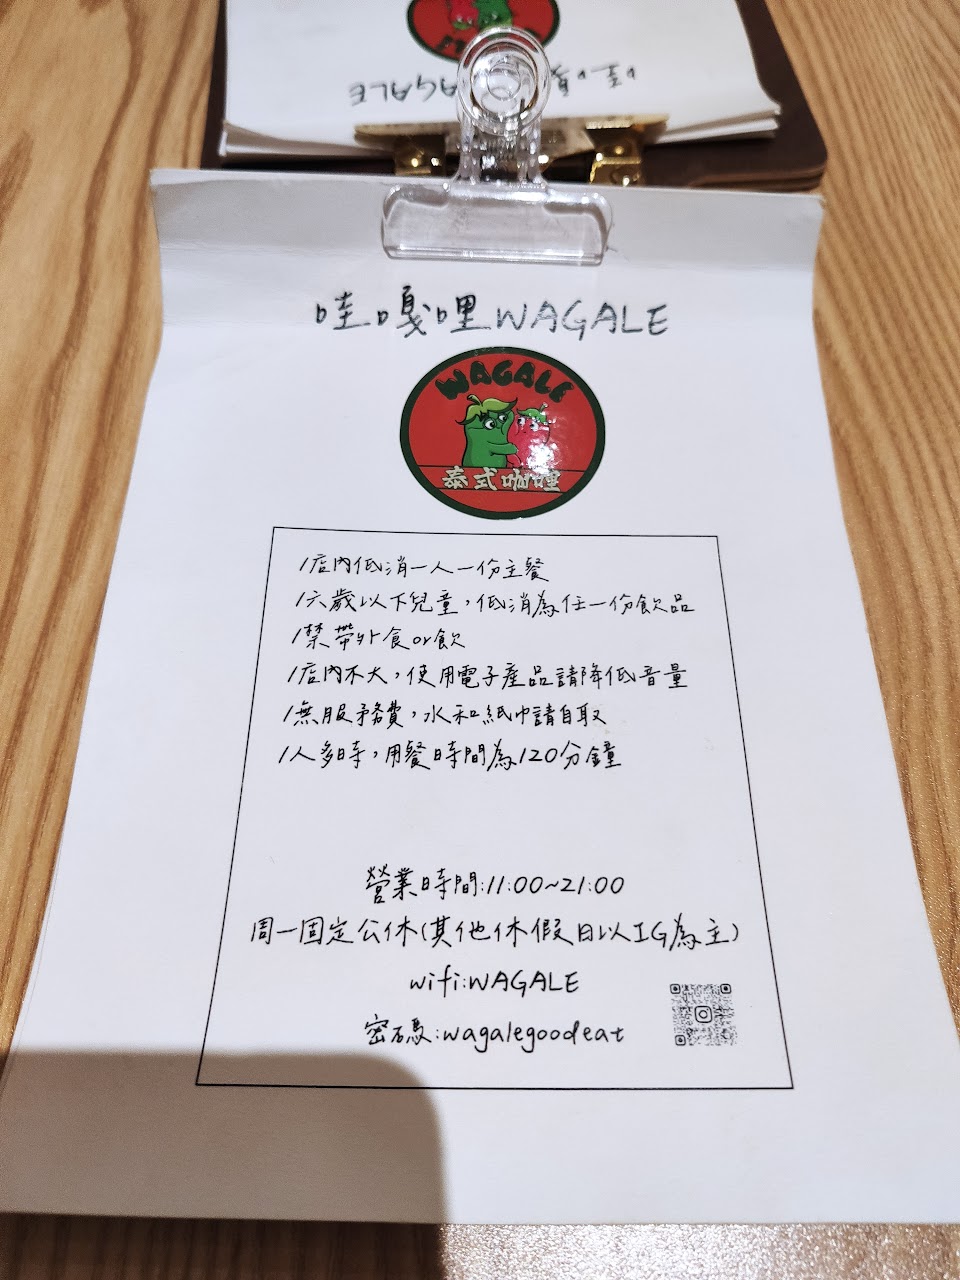 哇嘎哩WAGALE
哇嘎哩WAGALE
WAGALE
泰式咖哩
/店內低消一人一份主餐
/六歲以下兒童,低消為任一份飲品
/禁帶外食or飲
/店內不大,使用電子產品請降低音量
/無服務費,水和紙巾請自取
/人多時,用餐時間為120分鐘
營業時間:11:00~21:00
周一固定公休(其他休假日以IG為主)
wifi:WAGALE
密碼:wagalegoodeat